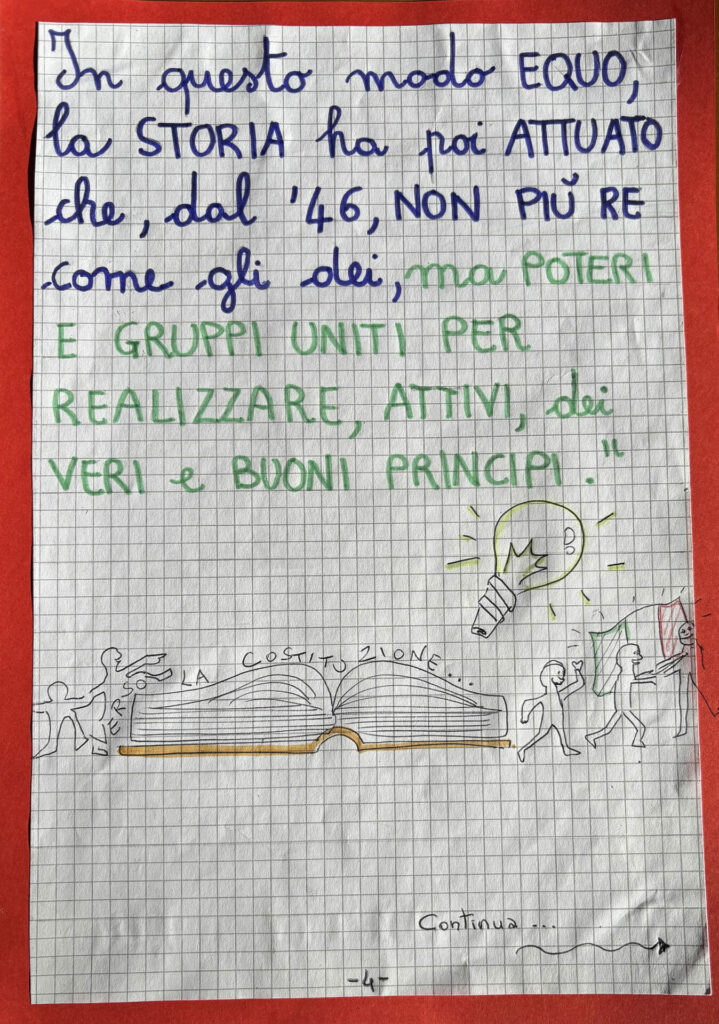 In questo modo EQUO,
la STORIA ha poi ATTUATO
che, dal '46, NON PIÙ RE
come gli dei, ma POTERI
E GRUPPI UNITI PER
REALIZZARE, ATTIVI, dei
VERI e BUONI PRINCIPI."
VERSO LA COSTITUZIONE...
Continua ...
-4-